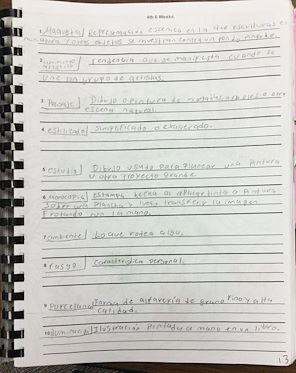 4th 6 Weeks
1. Maqueta| Representación escénica en la que esculturas en
miniatura y otros objetos se muestran contra un fondo pintado.
2. movimiento| Tendencia que se manifiesta cuando se
artístico
une un grupo de artistas.
3 Paisaje| Dibujo o pintura de montañas, arboles o otra
escena natural.
4. estilizado| Simplificado o exagerado.
5. estudio| Dibujo usado para planear una Pintura
u otro proyecto grande.
6. monocopia| Estampa hecha al aplicar tinta o Pintura
sobre una plancha y luego transferir la imagen
frotando con la mano.
7 ambiente| Lo que rodea algo.
8. rasgo| Característica personal.
9. Porcelana| Forma de alfarería de grano fino y alta
calidad.
10. Iluminación| Ilustración pintada a mano en un libro.
13